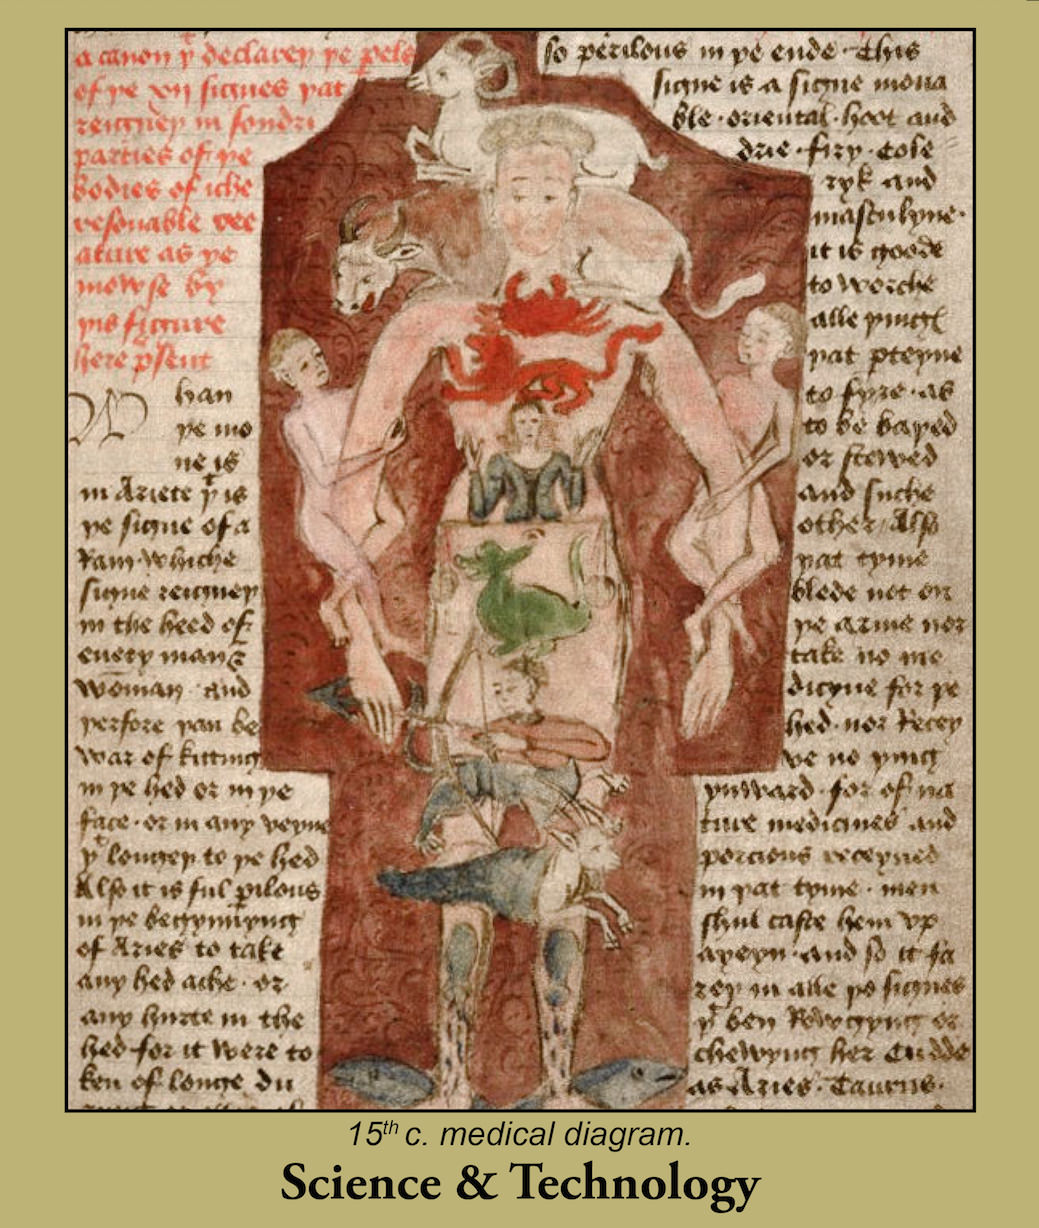 a canon þt declareþ þe pels
of þe xij signes þat
reigneþ in sondri
parties of þe
bodies of iche
resonable cre
ature as ye
mow se by
þis figure
here p̱sent
Whan
þe mo
ne is
in Ariete þt is
þe signe of a
Ram · whiche
signe reigneþ
in the heed of
euery man &
woman · and
þerfore þan be
war of kitting
in þe hed or in þe
face · or in any veyne
þt longeþ to þe hed
Also it is ful p̱ilous
in þe begynnyng
of Aries to take
any hed ache · or
any hurte in the
hed · for it were to
ken of longe du
so perilous in þe ende · This
signe is a signe mova
ble · oriental · hoot and
drie · firy · Cole
ryk and
masculyne ·
it is goode
to worche
alle þingꝭ
þat pteyne
to fyre · as
to be baþed
or stewed
and suche
other / Also
þat tyme
blede not on
þe arme nor
take no me
dicyne for þe
hed · nor Recey
ve no þing
ynward · for of na
ture medicines and
pocions receyued
in þat tyme · men
shul caste hem vp
ayeyn · and so it fa
reþ in alle þo signes
þt ben Rowgyng or
chewyng her Cudde
as Aries · Taurus ·
15th c. medical diagram.
Science & Technology